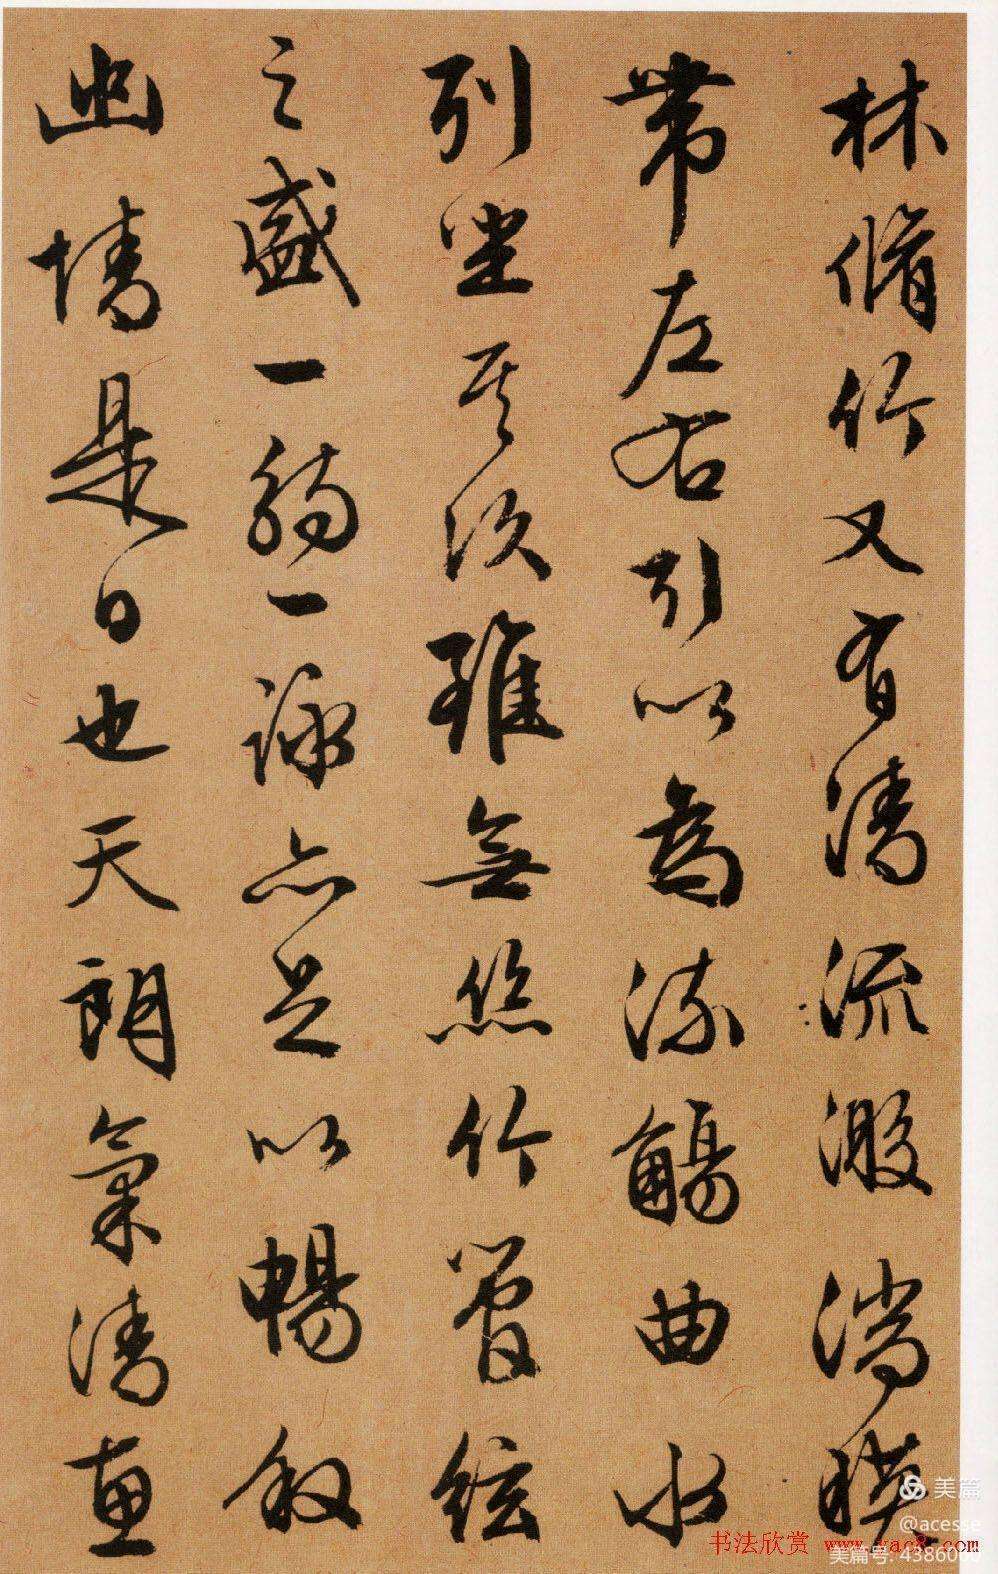 林脩竹又有清流激湍暎
帶左右引以為流觴曲水
列坐其次雖無絲竹管絃
之盛一觴一詠亦足以暢叙
幽情是日也天朗氣清惠
美篇
@acesse
书法欣赏 www.yac8.com
美篇号: 4386000